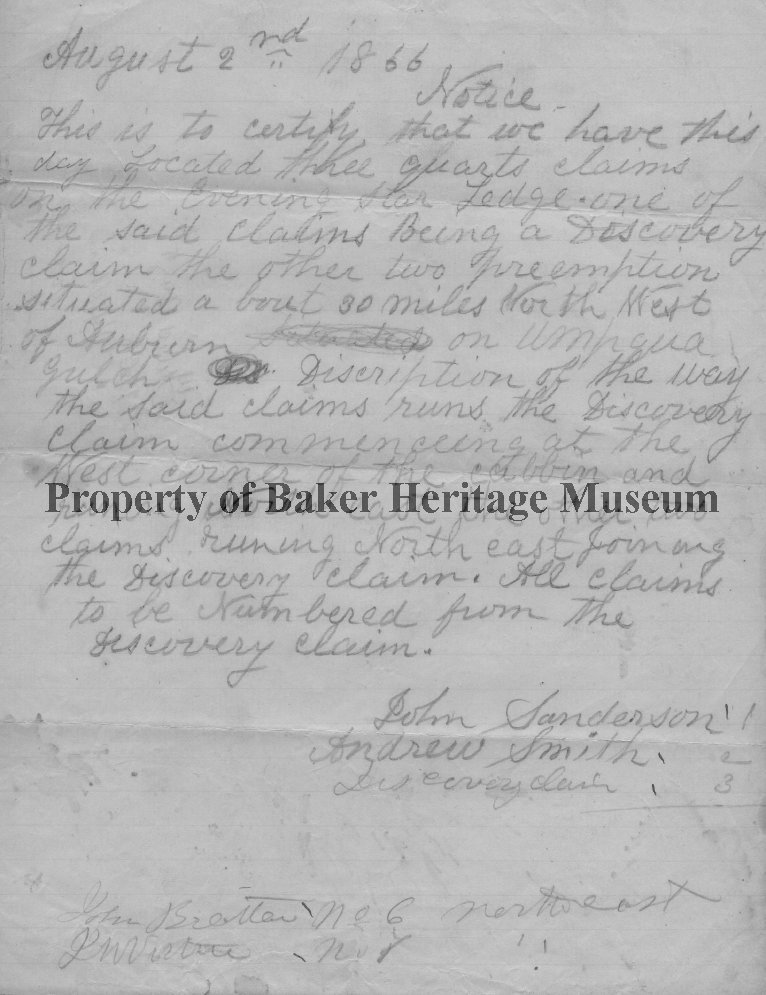 August 2nd 1866
Notice
This is to certify that we have this
day Located three quarts claims
on the Evening Star Ledge. one of
the said claims Being a Discovery
claim the other two preemption
situated a bout 30 miles North West
of Auburn on Umpqua
Gulch Discription of the way
the said claims runs the Discovery
claim commenceing at the
West corner of the cabbin and
Property of Baker Heritage Museum
runing North east the other two
claims runing North east Joining
the Discovery claim. All claims
to be Numbered from the
Discovery claim.
John Sanderson 1
Andrew Smith 2
Discovery claim 3
John Brattain No 6 North east
J W Virtue No 8 " "